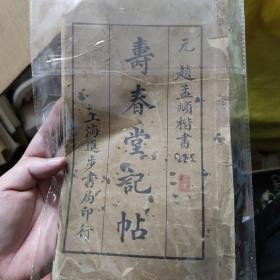 元 趙孟頫楷書
壽春堂記帖
上海進步書局印行